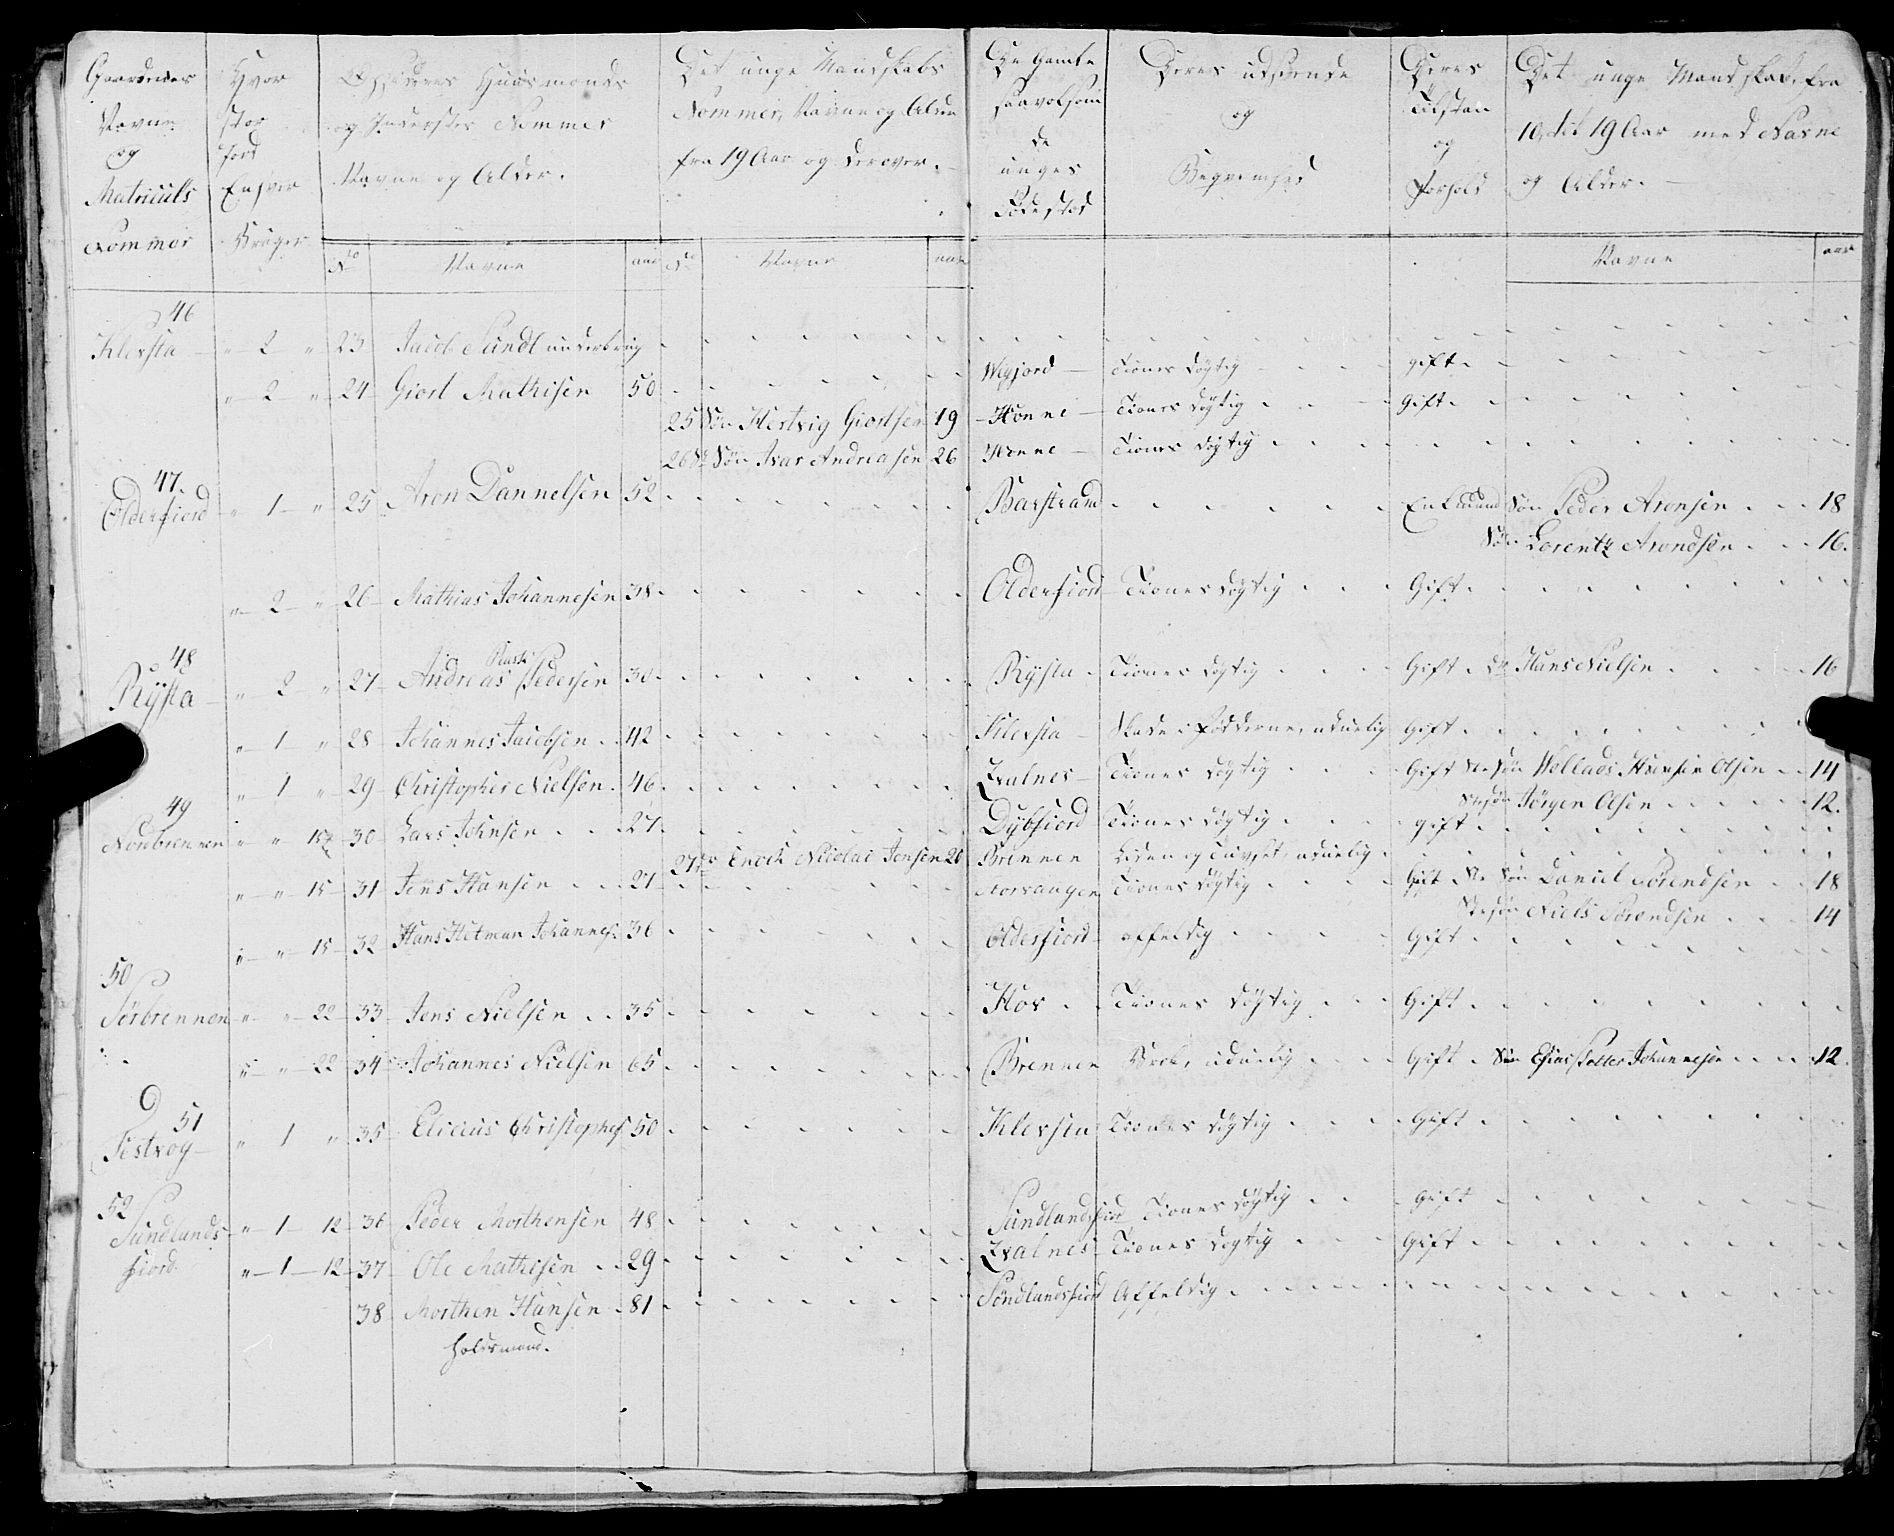 Gaardenes Navne og Matriculs Nommer
Hvor stor Jord Enhver Bruger
Opsidderes Huusmænds og Inderstes Nommer Navne og Alder.
Det unge Mandskabs Nommer, Navne og Alder fra 19 Aar og derover.
De Gamle saavelsom de unges Fødestæd
Deres udseende og Beqvemhed
Deres Tilstan og Forhold
Det unge Mandskab fra 10 til 19 Aar med Navne og Alder.
No Navne aar No Navne aar Navne aar
46
Klevsta " 2 " 23 Jacob Lind underbrug
" 2 " 24 Giort Mathisen 50 Tienes døgtig gift
25 Søn Hertvig Giortsen 19 Honne Tienes døgtig Gift
26 St Søn Ivar Andreasen 26 Honne Tienes døgtig
47.
Olderfiord " 1 " 25 Aron Dannelsen 52 Barstrand Enkemand Søn Peder Aronsen 18
Søn Lorentz Arondsen 16.
" 2 " 26 Mathias Johannesen 38 Olderfiord Tienes døgtig Gift
48
Rÿsta " 2 " 27 Andreas Pedersen 30 Rÿsta Tienes døgtig Gift Hans Nielsen 16
" 1 " 28 Johannes Jacobsen 42 Klevsta Skade i Fødderne, uduelig Gift
" 1 " 29 Christopher Nielsen 46 Qvalnes Tienes døgtig Gift Ste Søn Wellads Olsen 14
Stesøn Jørgen Olsen 12.
49
Nordbrennen " " 15 30 Lars Johnsen 27 Dybfiord Tienes døgtig gift
27 Enoch Nicolai Jensen 20 Brennen Liden og uduelig
" " 15 31 Jens Hansen 27 Tienes døgtig Gift Ste Søn Daniel Sørendsen 18
Stesøn Niels Sørendsen 14
" " 15 32 Hans Hetman Johannes 36 Olderfiord affeldig Gift
50
Sørbrennen " " 22 33 Jens Nielsen 35 Hov Tienes døgtig Gift
" " 22 34 Johannes Nielsen 65 Brennen Brok, uduelig Gift Søn Esias Petter Johannesen 12.
51
Festvog " 1 " 35 Eliæus Christophes 50 Klevsta Tienes døgtig Gift
52
Sundlands- " 1 12 36 Peder Morthensen 48 Sundlandsfiord Tienes døgtig Gift
fiord. " 1 12 37 Ole Mathisen 29 Qvalnes Tienes døgtig Gift
38 Morthen Hansen 81 Søndlandsfiord Affeldig
Holdsmand.